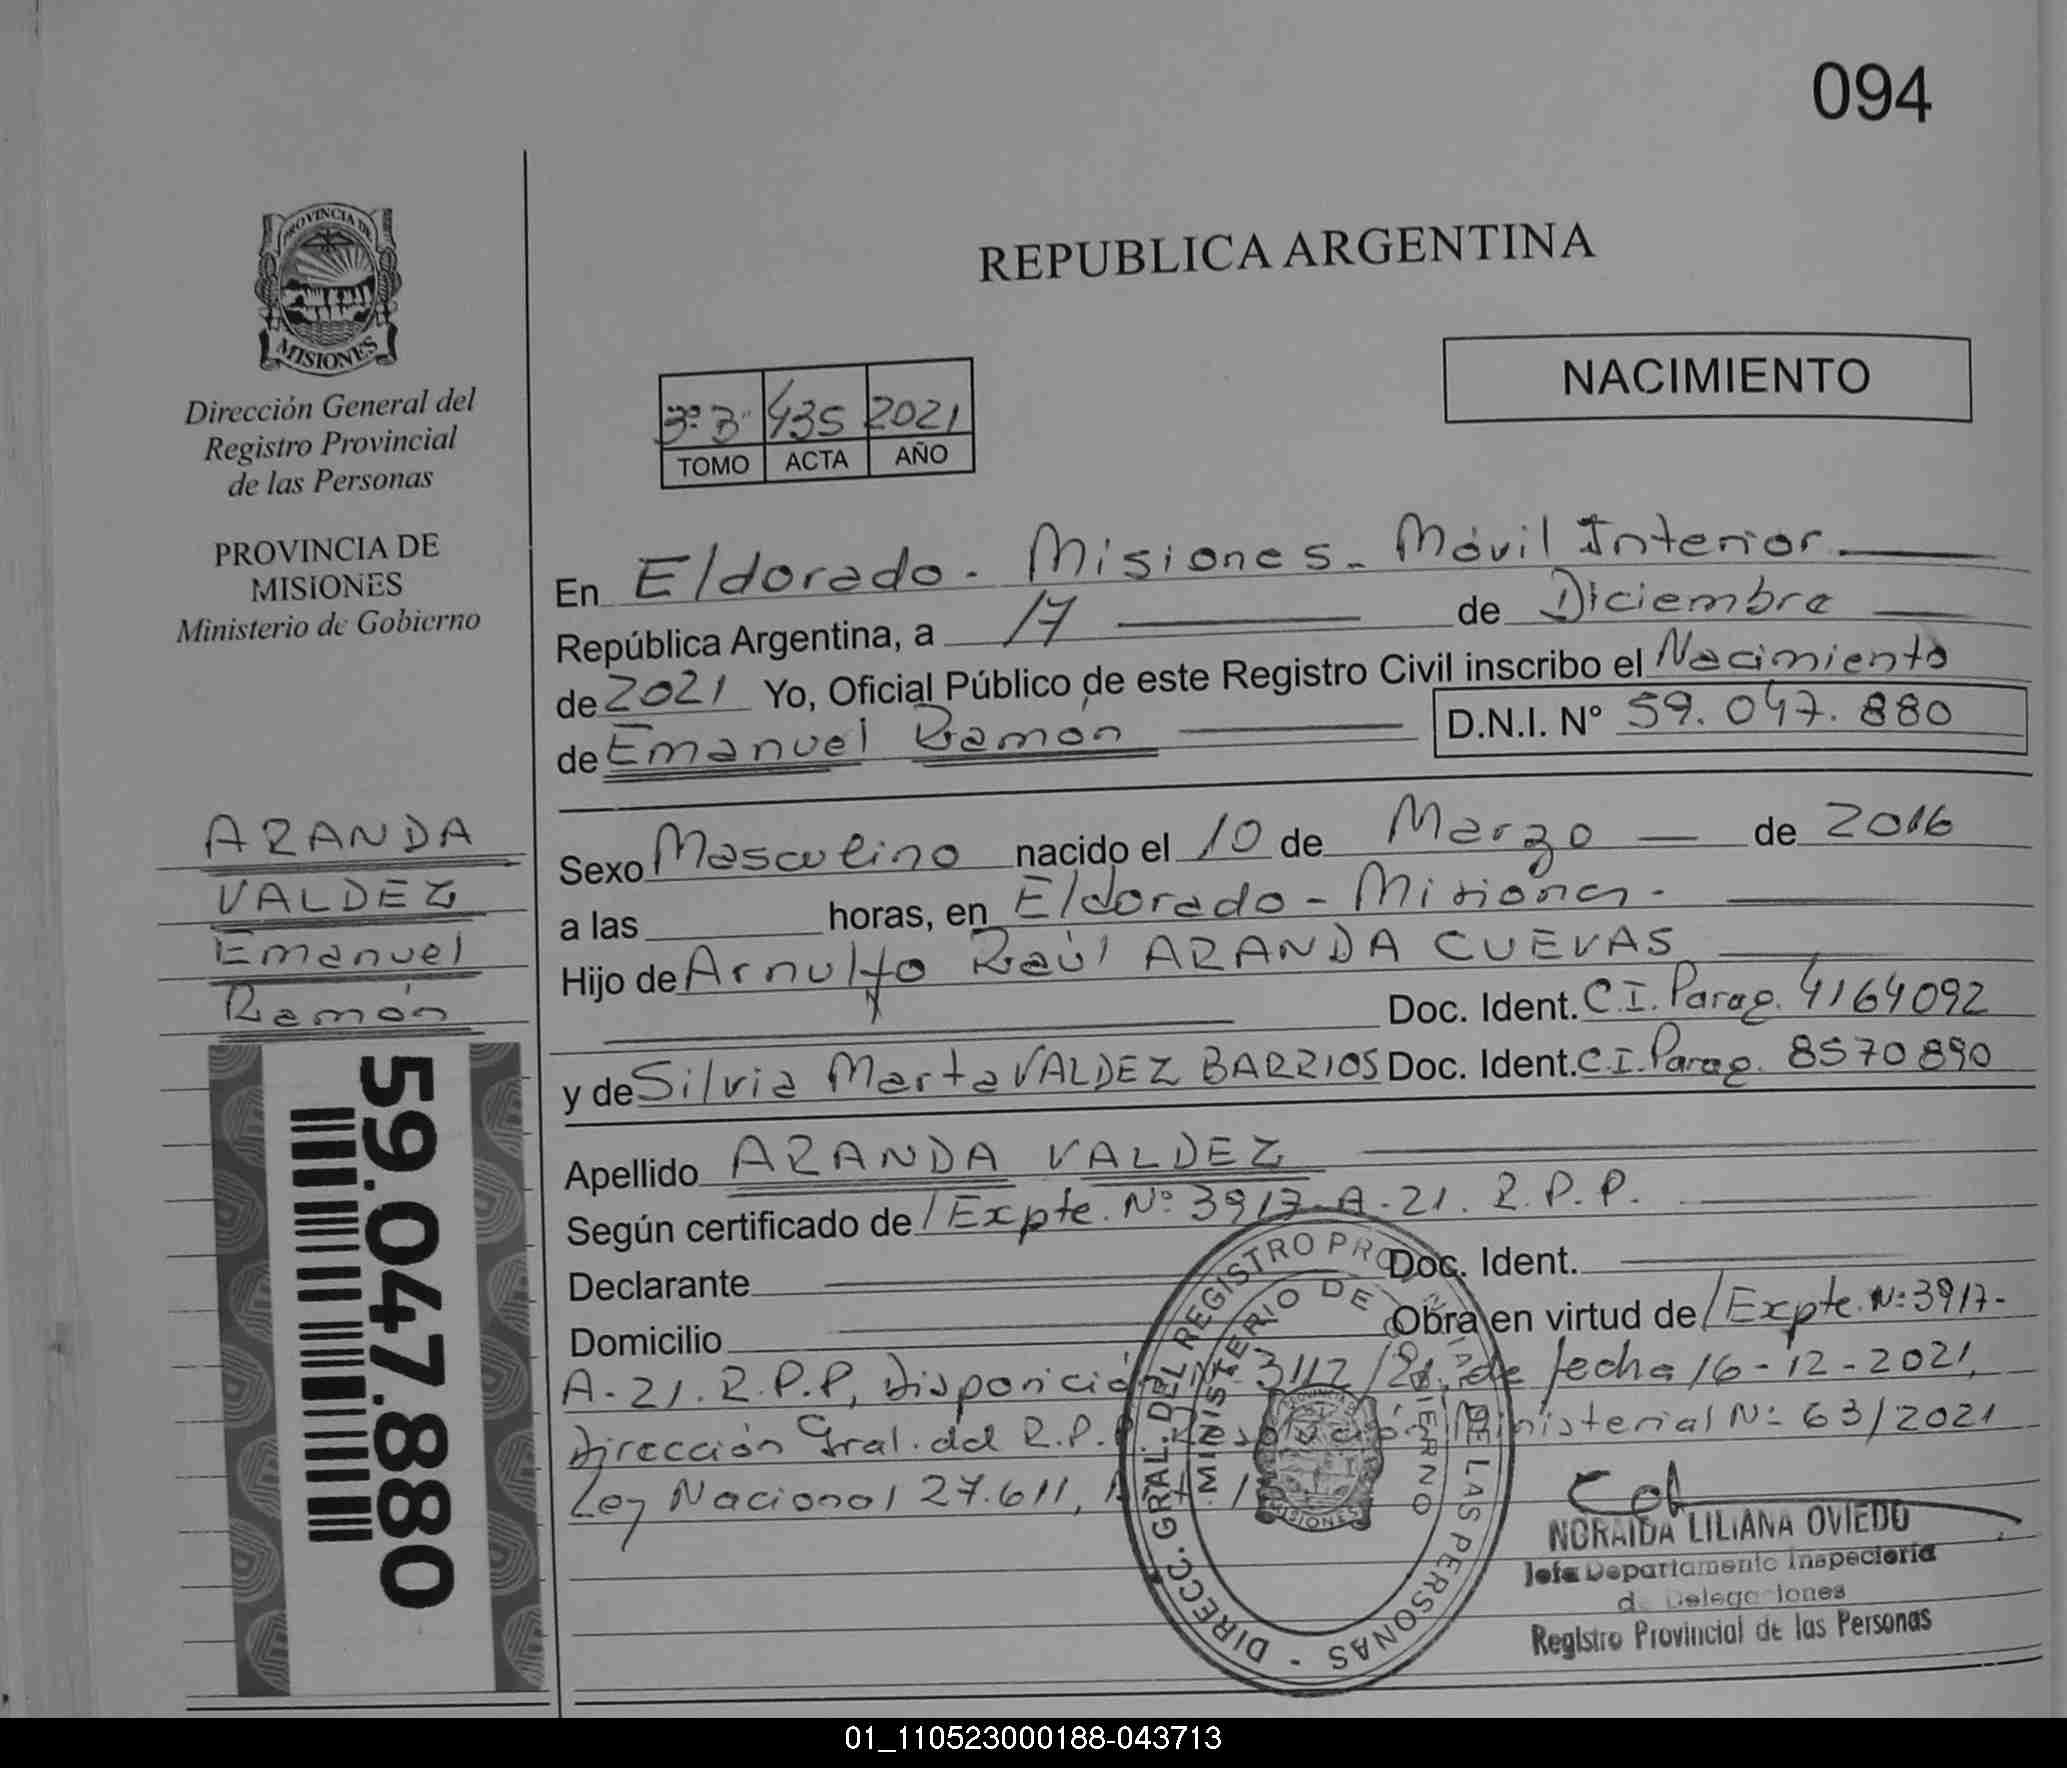 094
PROVINCIA DE
MISIONES
Dirección General del
Registro Provincial
de las Personas
PROVINCIA DE
MISIONES
Ministerio de Gobierno
REPUBLICA ARGENTINA
NACIMIENTO
3º B" 435 2021
TOMO ACTA AÑO
En Eldorado - Misiones - Móvil Interior
República Argentina, a 17 de Diciembre
de 2021 Yo, Oficial Público de este Registro Civil inscribo el Nacimiento
de Emanuel Ramón D.N.I. Nº 59.047.880
Sexo Masculino nacido el 10 de Marzo de 2016
a las horas, en Eldorado - Misiones -
Hijo de Arnulfo Raúl ARANDA CUEVAS
Doc. Ident. C.I. Parag. 4164092
y de Silvia Marta VALDEZ BARRIOS Doc. Ident. C.I. Parag. 8570890
Apellido ARANDA VALDEZ
Según certificado de / Expte. Nº 3917-A-21. R.P.P.
Declarante Doc. Ident.
Domicilio Obra en virtud de / Expte. Nº 3917-
A-21. R.P.P, Disposición 3112/21, de fecha 16-12-2021,
Dirección Gral. del R.P.P Resolución Ministerial Nº 63/2021
Ley Nacional 27.611,
ARANDA
VALDEZ
Emanuel
Ramón
59.047.880
DIRECC. GRAL. DEL REGISTRO PROVINCIAL DE LAS PERSONAS -
MINISTERIO DE GOBIERNO
MISIONES
NORAIDA LILIANA OVIEDO
Jefa Departamento Inspectoria
de Delegaciones
Registro Provincial de las Personas
01_110523000188-043713